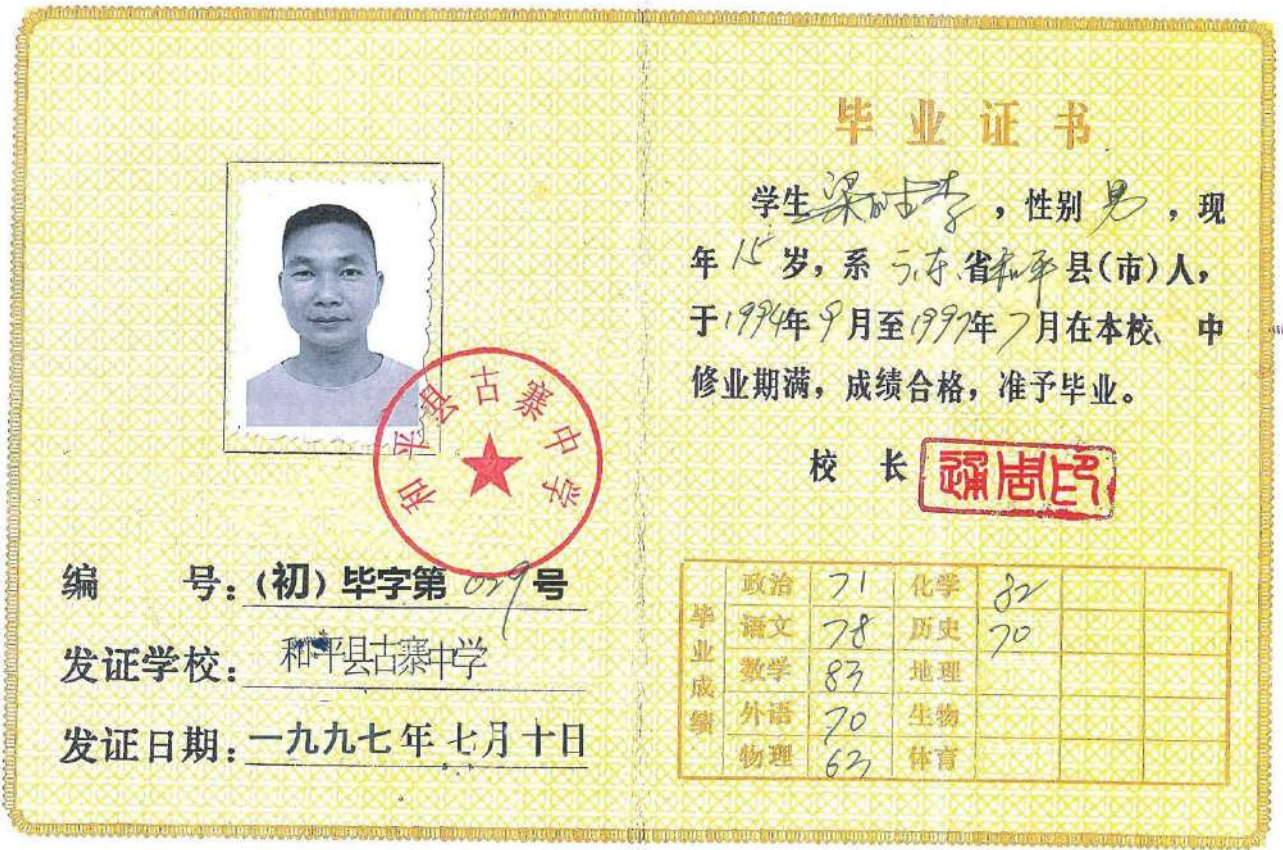 和平县古寨中学
编 号：(初) 毕字第 029 号
发证学校：和平县古寨中学
发证日期：一九九七年七月十日
毕业证书
学生梁，性别男，现
年15岁，系广东省和平县(市)人，
于1994年9月至1997年7月在本校、中
修业期满，成绩合格，准予毕业。
校 长
毕业成绩
政治 71 化学 82
语文 78 历史 70
数学 83 地理
外语 70 生物
物理 63 体育